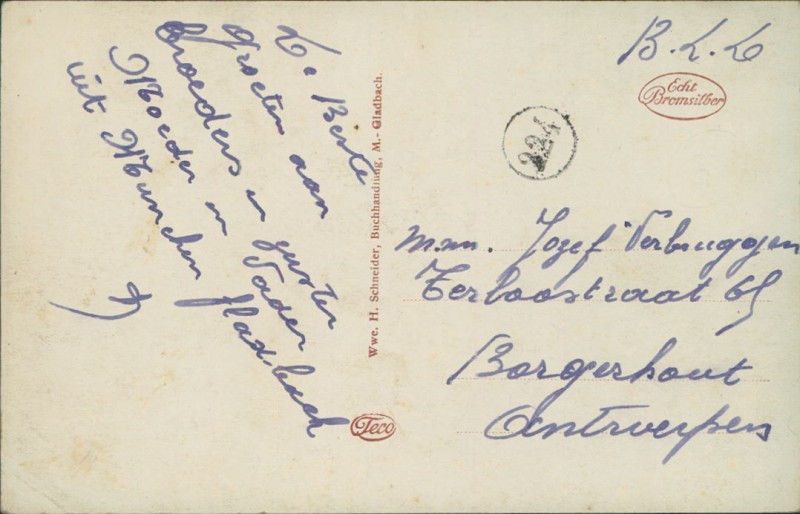 De Beste
groeten aan
broeders en zuster
Moeder en Vader
uit Munchen Gladbach
Wwe. H. Schneider, Buchhandlung, M.-Gladbach.
Teco
B.L.L
Echt
Bromsilber
224
Jozef Verbruggen
Terloostraat 65
Borgerhout
Antwerpen